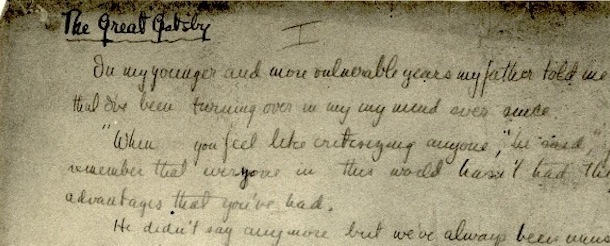 The Great Gatsby
I
In my younger and more vulnerable years my father told me
that I've been turning over in my my mind ever since.
"When you feel like critisizing anyone," he said, "
remember that everyone in this world hasn't had the
advantages that you've had.
He didn't say anymore but we've always been